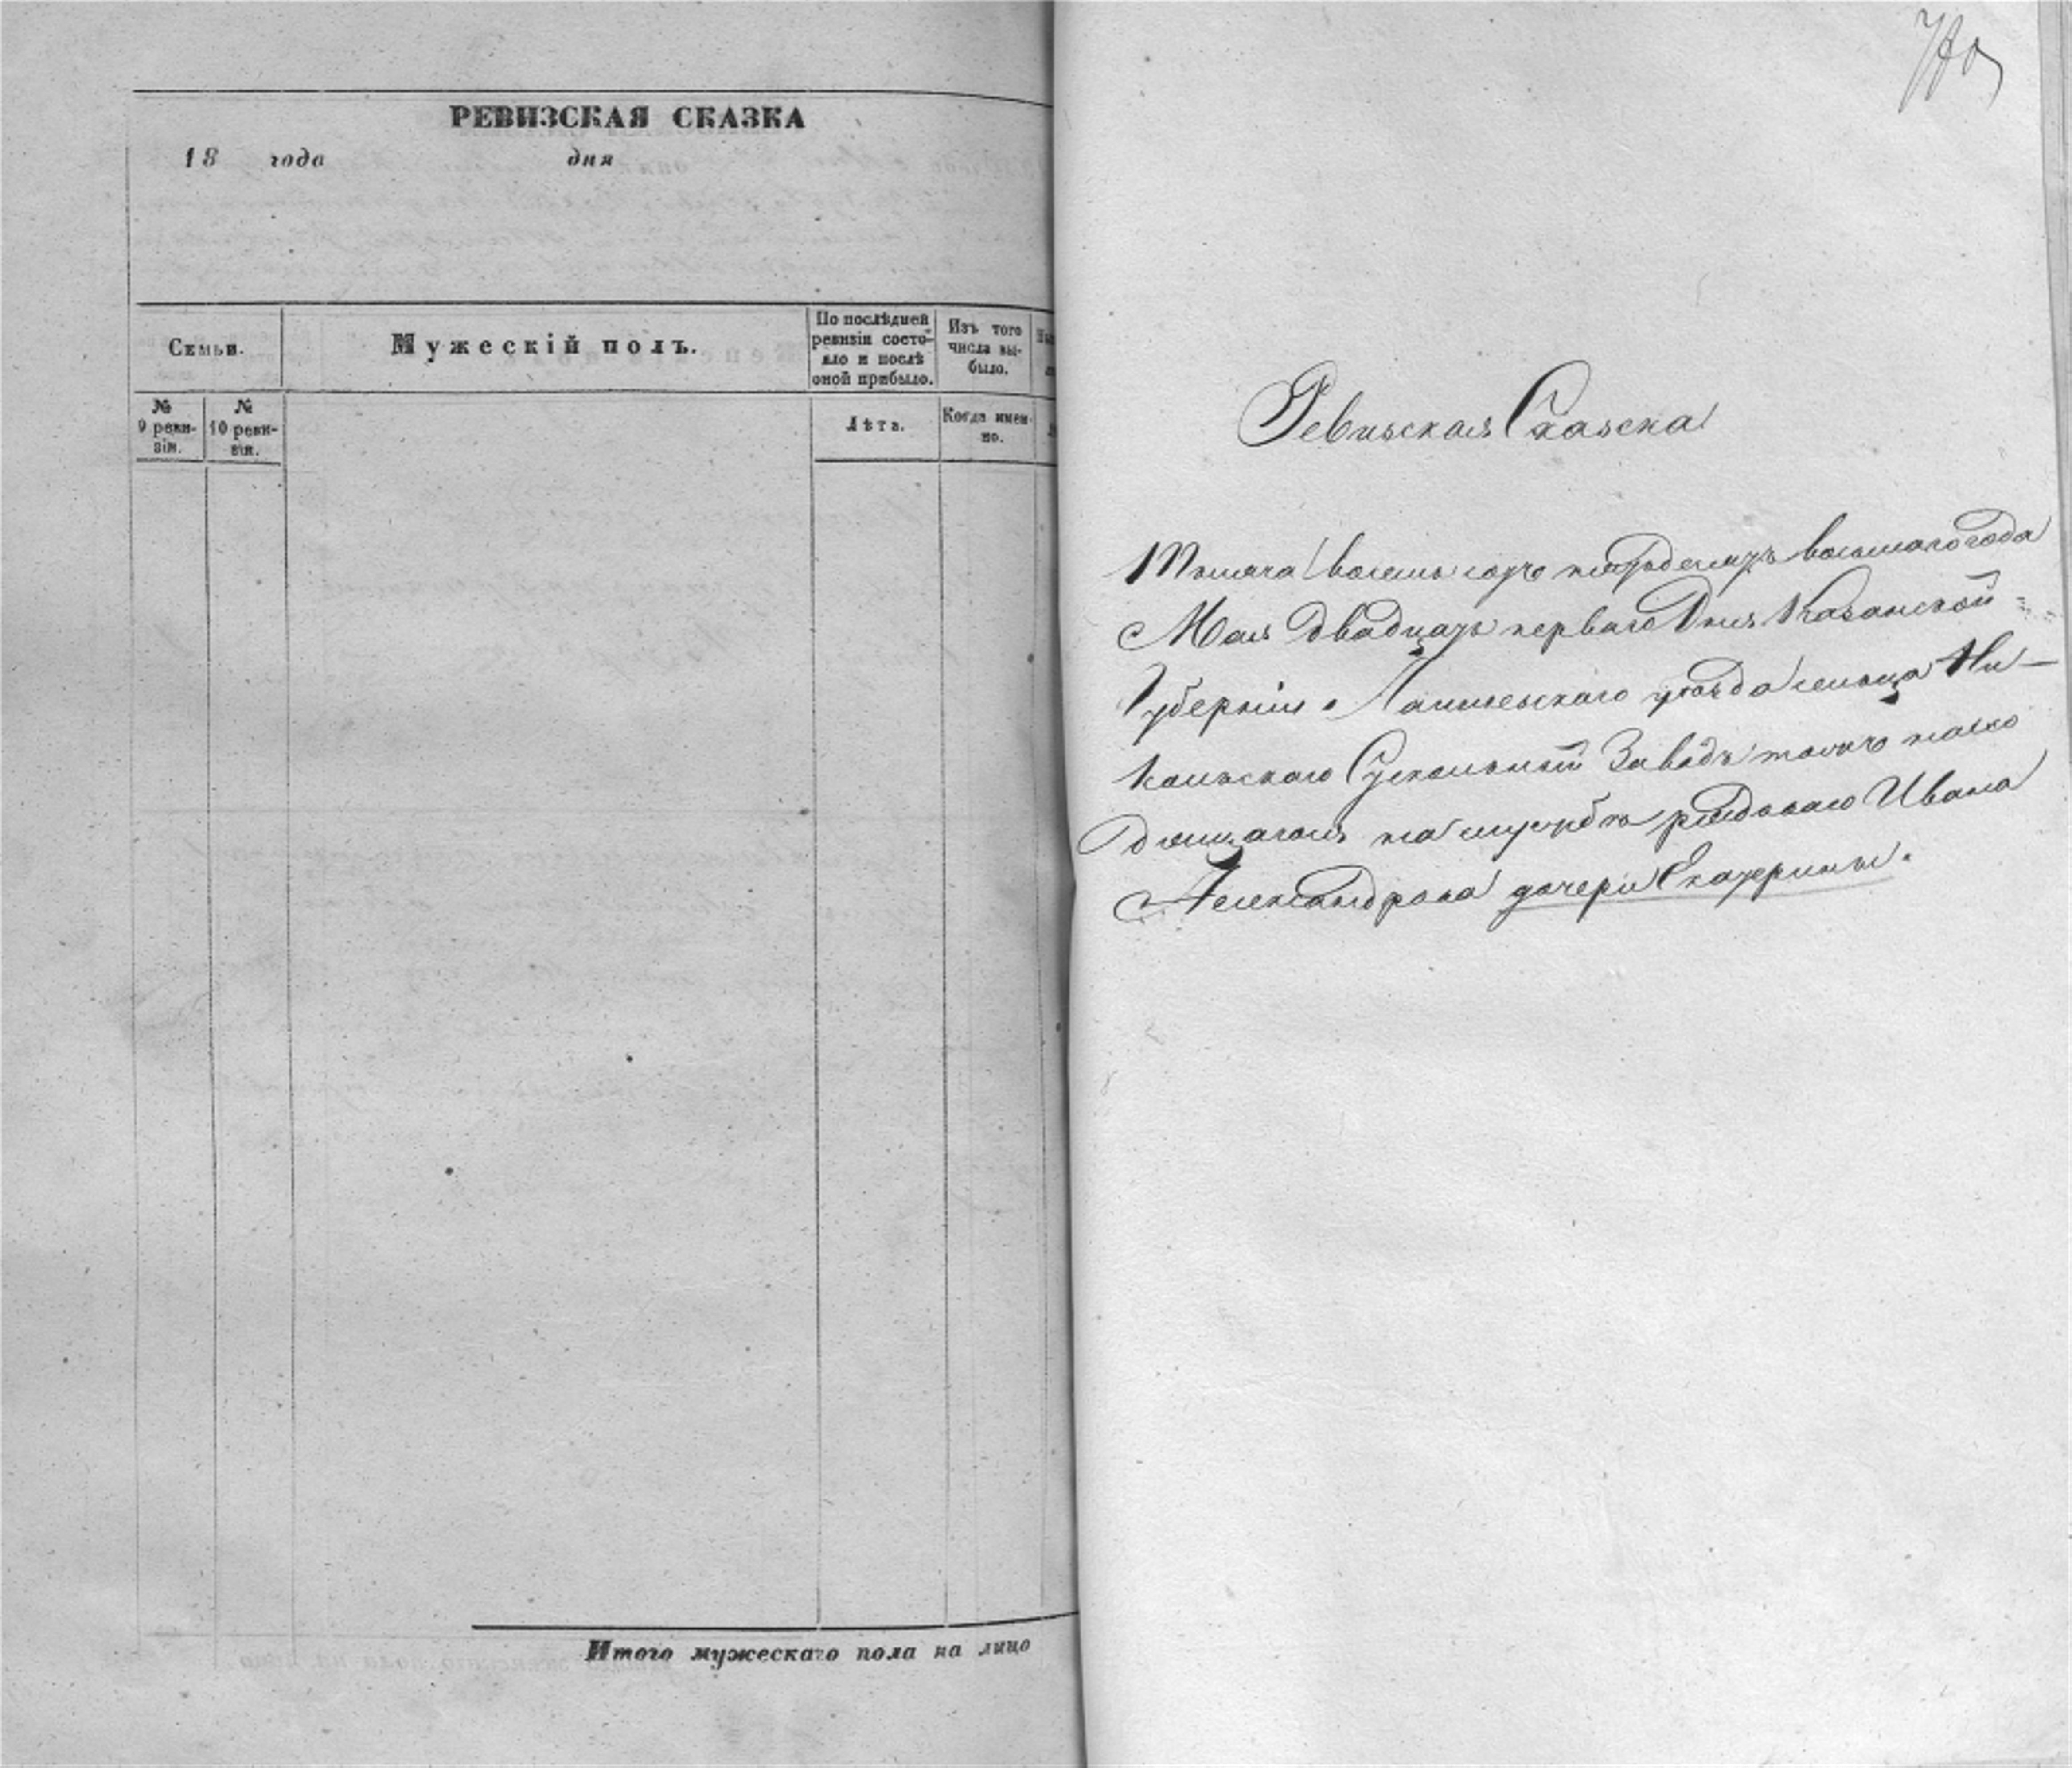 РЕВИЗСКАЯ СКАЗКА
18 года дня
Семьи.
Мужескій полъ.
По послѣдней
ревизіи состо-
яло и послѣ
оной прибыло.
Изъ того
числа вы-
было.
№
9 реви-
зіи.
№
10 реви-
зіи.
Лѣта.
Когда имен-
но.
Итого мужескаго пола на лицо
Ревизская Сказка
Тысяча восемь сотъ пятьдесятъ восьмаго года
Мая двадцать перваго дня Казанской
Губерніи Лаишевскаго уѣзда сельца Ни-
кольскаго Заводъ тожъ
на службѣ рядоваго Ивана
Александрова дочери Екатерины.